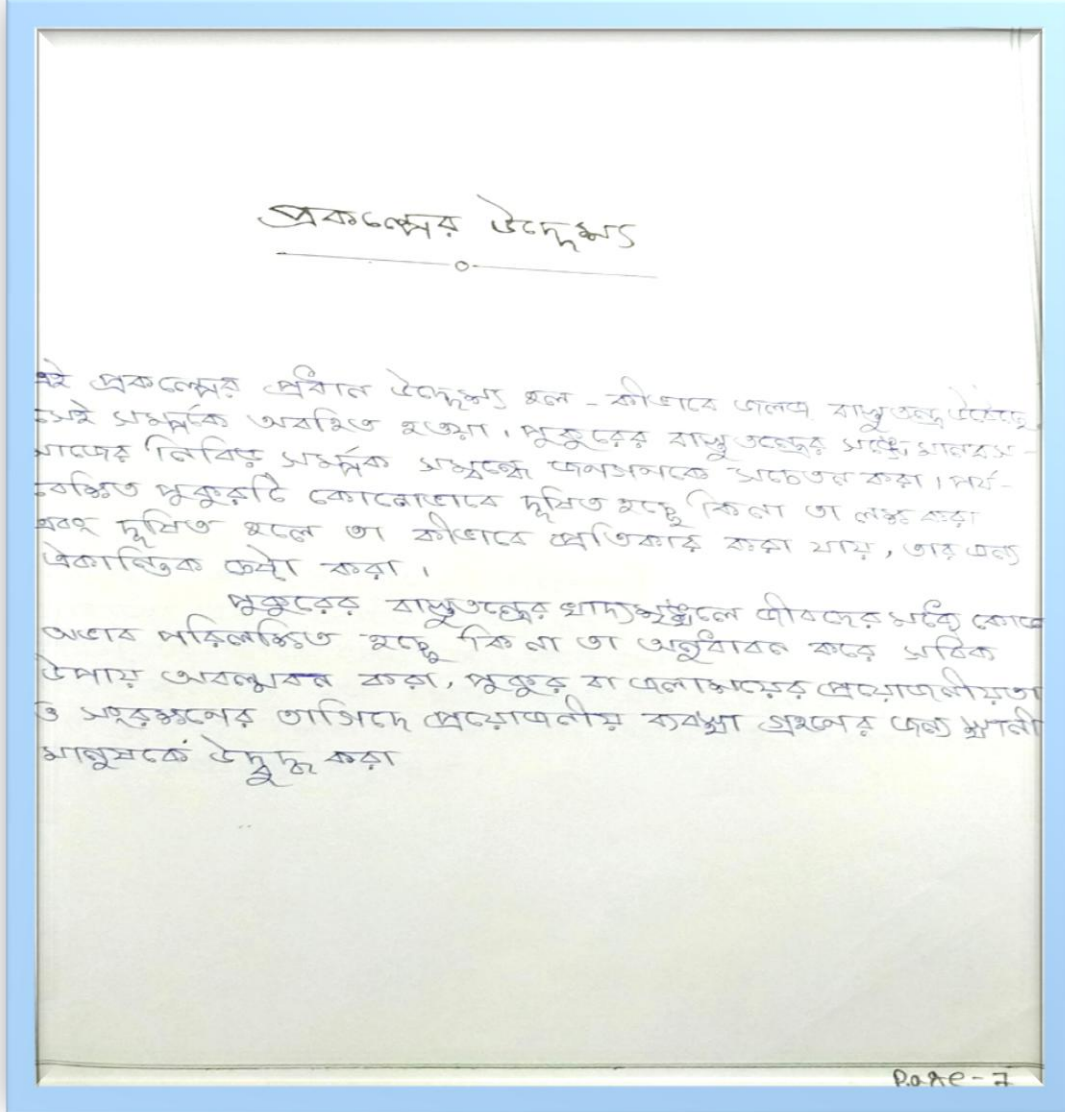 প্রকল্পের উদ্দেশ্য
এই প্রকল্পের প্রধান উদ্দেশ্য হল - কীভাবে জলজ বাস্তুতন্ত্র
সেই সম্পর্কে অবহিত হওয়া। পুকুরের বাস্তুতন্ত্রের সঙ্গে মানবস-
মাজের নিবিড় সম্পর্ক সম্বন্ধে জনগণকে সচেতন করা। পর্য-
বেক্ষিত পুকুরটি কোনোভাবে দূষিত হচ্ছে কিনা তা লক্ষ করা
এবং দূষিত হলে তা কীভাবে প্রতিকার করা যায়, তার জন্য
ঐকান্তিক চেষ্টা করা।
পুকুরের বাস্তুতন্ত্রের খাদ্যশৃঙ্খলে জীবদের মধ্যে কোনো
অভাব পরিলক্ষিত হচ্ছে কি না তা অনুধাবন করে সঠিক
উপায় অবলম্বন করা, পুকুর বা জলাশয়ের প্রয়োজনীয়তা
ও সংরক্ষণের তাগিদে প্রয়োজনীয় ব্যবস্থা গ্রহণের জন্য স্থানী
মানুষকে উদ্বুদ্ধ করা
Page - 7